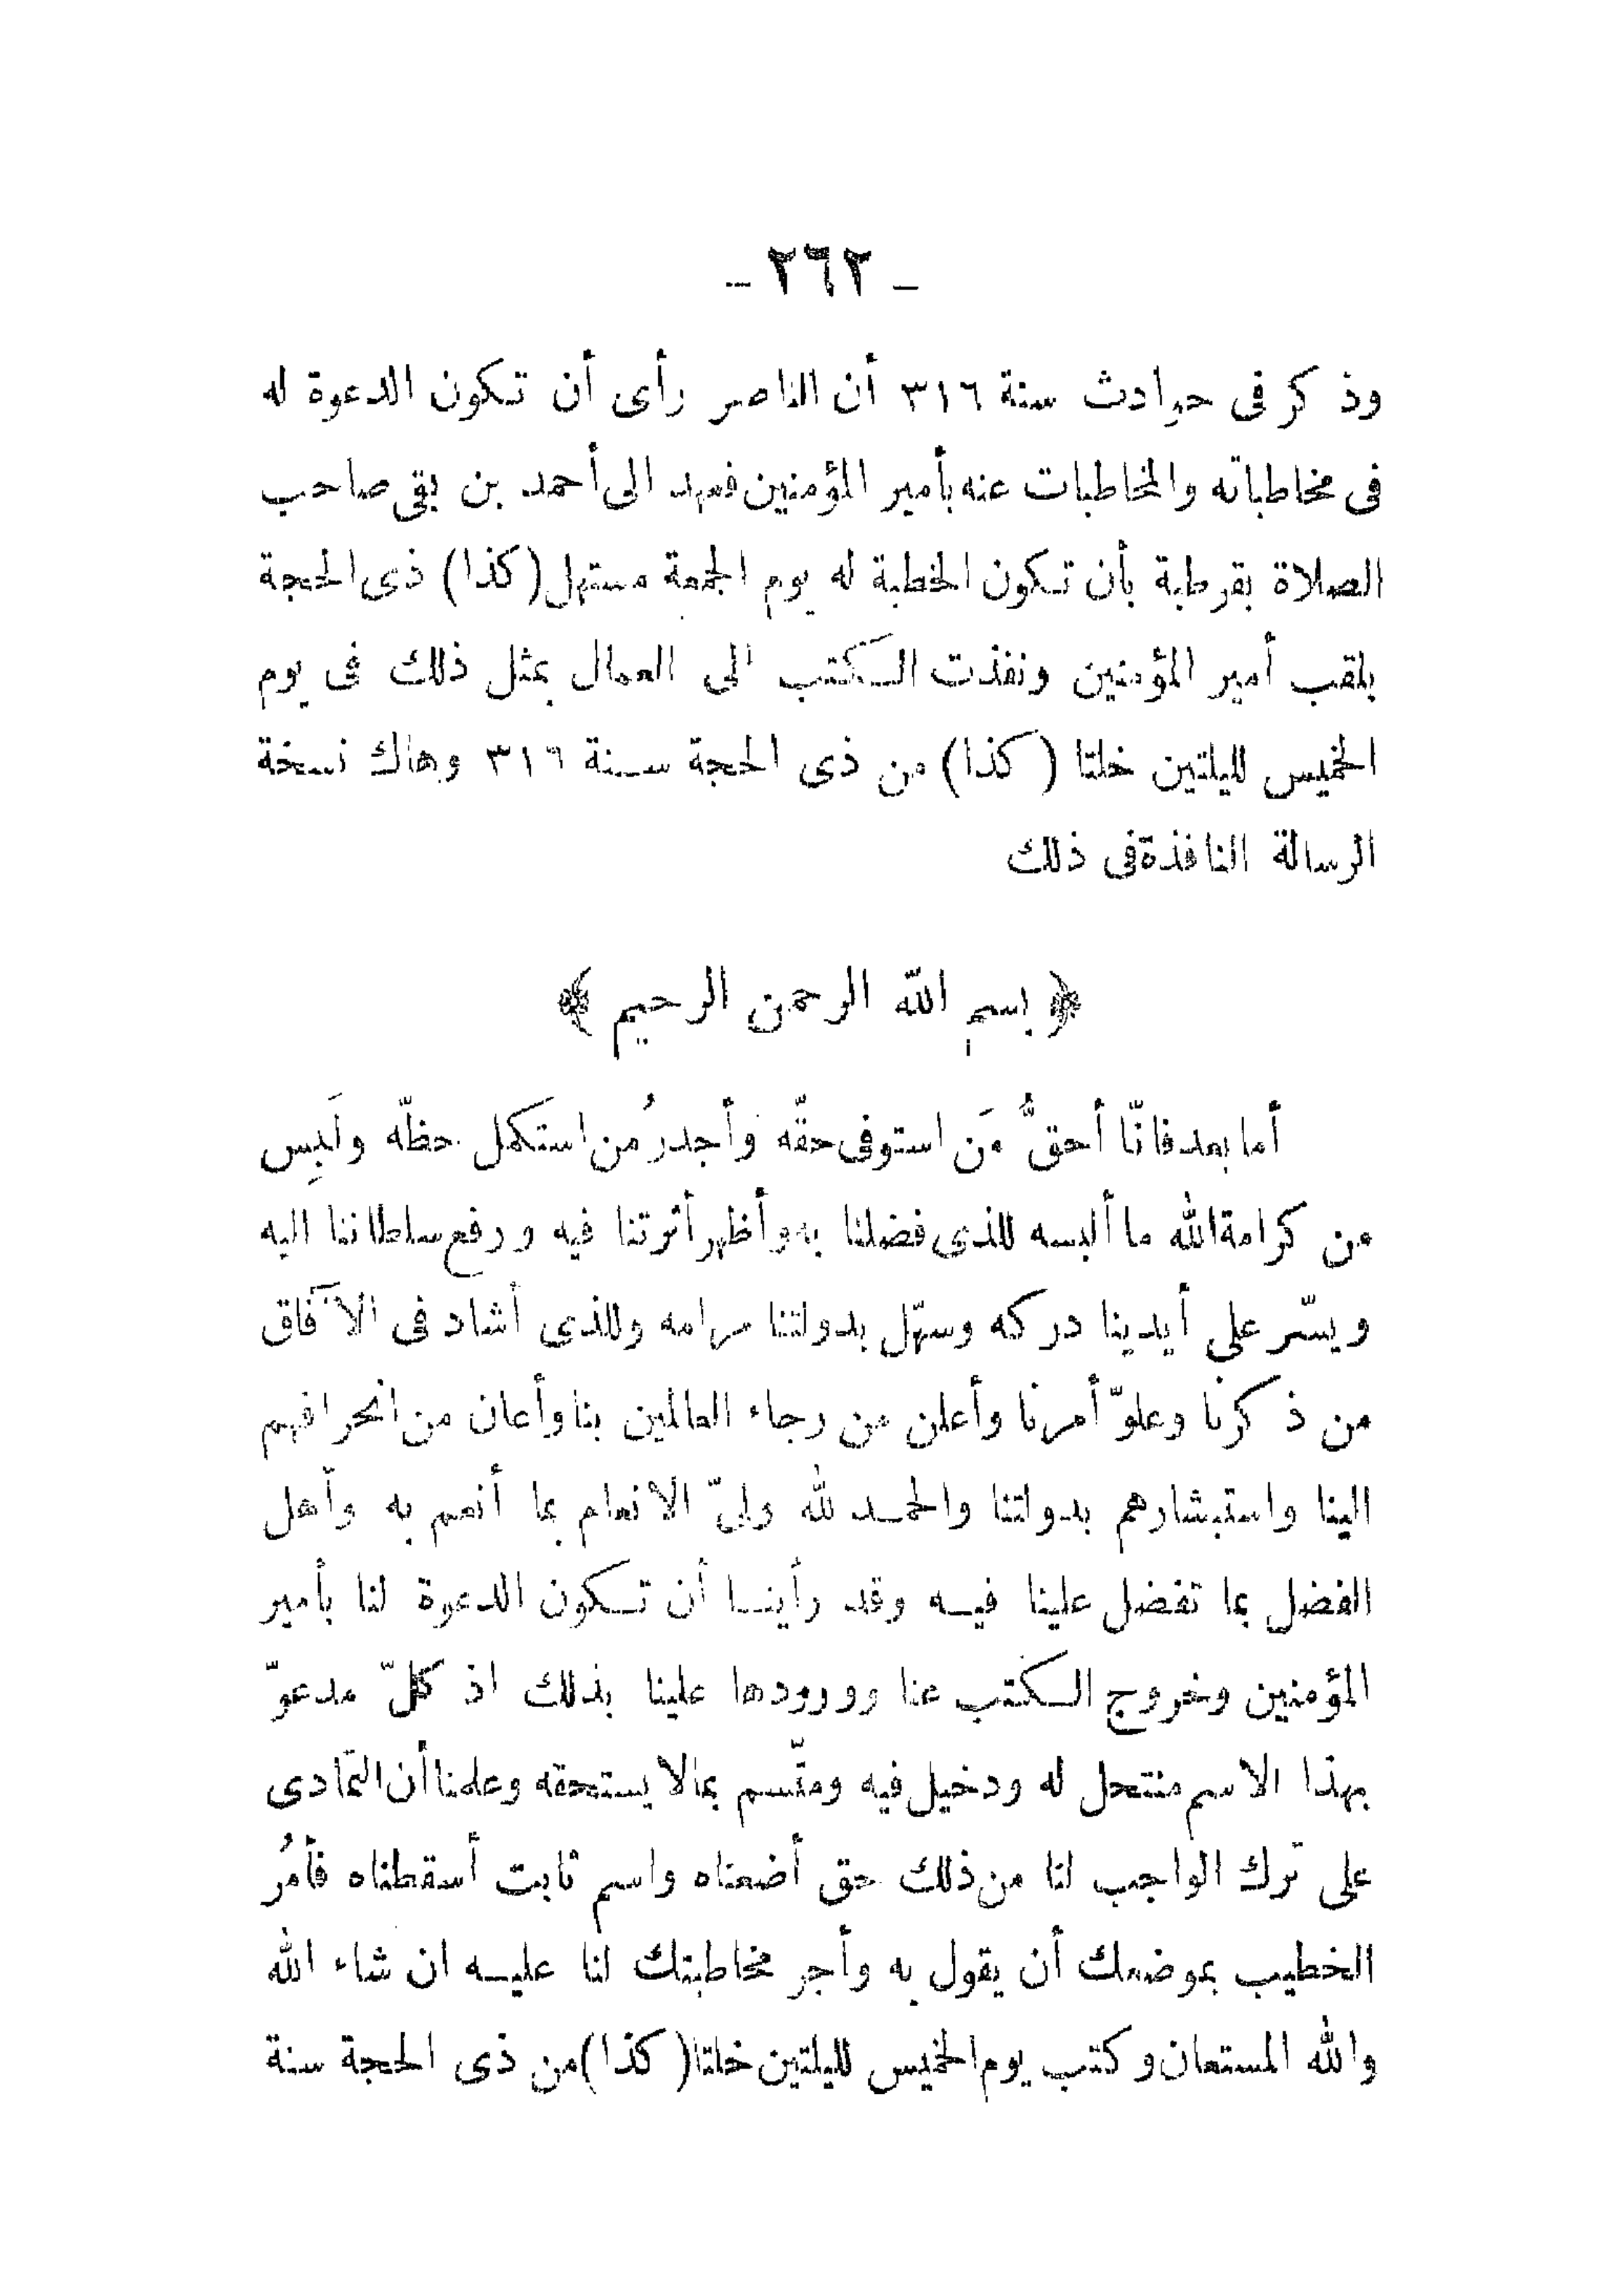 - ٢٦٢ -
وذكر فى حوادث سنة ٣١٦ أن الناصر رأى أن تكون الدعوة له
فى مخاطباته والمخاطبات عنه بأمير المؤمنين فعهد الى أحمد بن بقى صاحب
الصلاة بقرطبة بأن تكون الخطبة له يوم الجمعة مستهل (كذا) ذى الحجة
بلقب أمير المؤمنين ونفذت الكتب الى العمال بمثل ذلك فى يوم
الخميس لليلتين خلتا (كذا) من ذى الحجة سنة ٣١٦ وهاك نسخة
الرسالة النافذة فى ذلك
﴿ بسم اللّه الرحمن الرحيم ﴾
أما بعد فانّا أحقُّ مَن استوفى حقّه وأجدرُ من استكمل حظّه ولَبِس
من كرامة الله ما ألبسه للذى فضلنا به وأظهر أثرتنا فيه ورفع سلطاننا اليه
ويسّر على أيدينا دركه وسهّل بدولتنا مرامه وللذى أشاد فى الآفاق
من ذكرنا وعلوّ أمرنا وأعلن من رجاء العالمين بنا وأعان من انحرافهم
الينا واستبشارهم بدولتنا والحمد لله ولىّ الانعام بما أنعم به وأهل
الفضل بما تفضل علينا فيه وقد رأينا أن تكون الدعوة لنا بأمير
المؤمنين وخروج الكتب عنا وورودها علينا بذلك اذ كلّ مدعوّ
بهذا الاسم منتحل له ودخيل فيه ومتّسم بما لا يستحقه وعلمنا أن التمادى
على ترك الواجب لنا من ذلك حق أضعناه واسم ثابت أسقطناه فأمُر
الخطيب بموضعك أن يقول به وأجر مخاطبتك لنا عليه ان شاء الله
والله المستعان وكتب يوم الخميس لليلتين خلتا (كذا) من ذى الحجة سنة